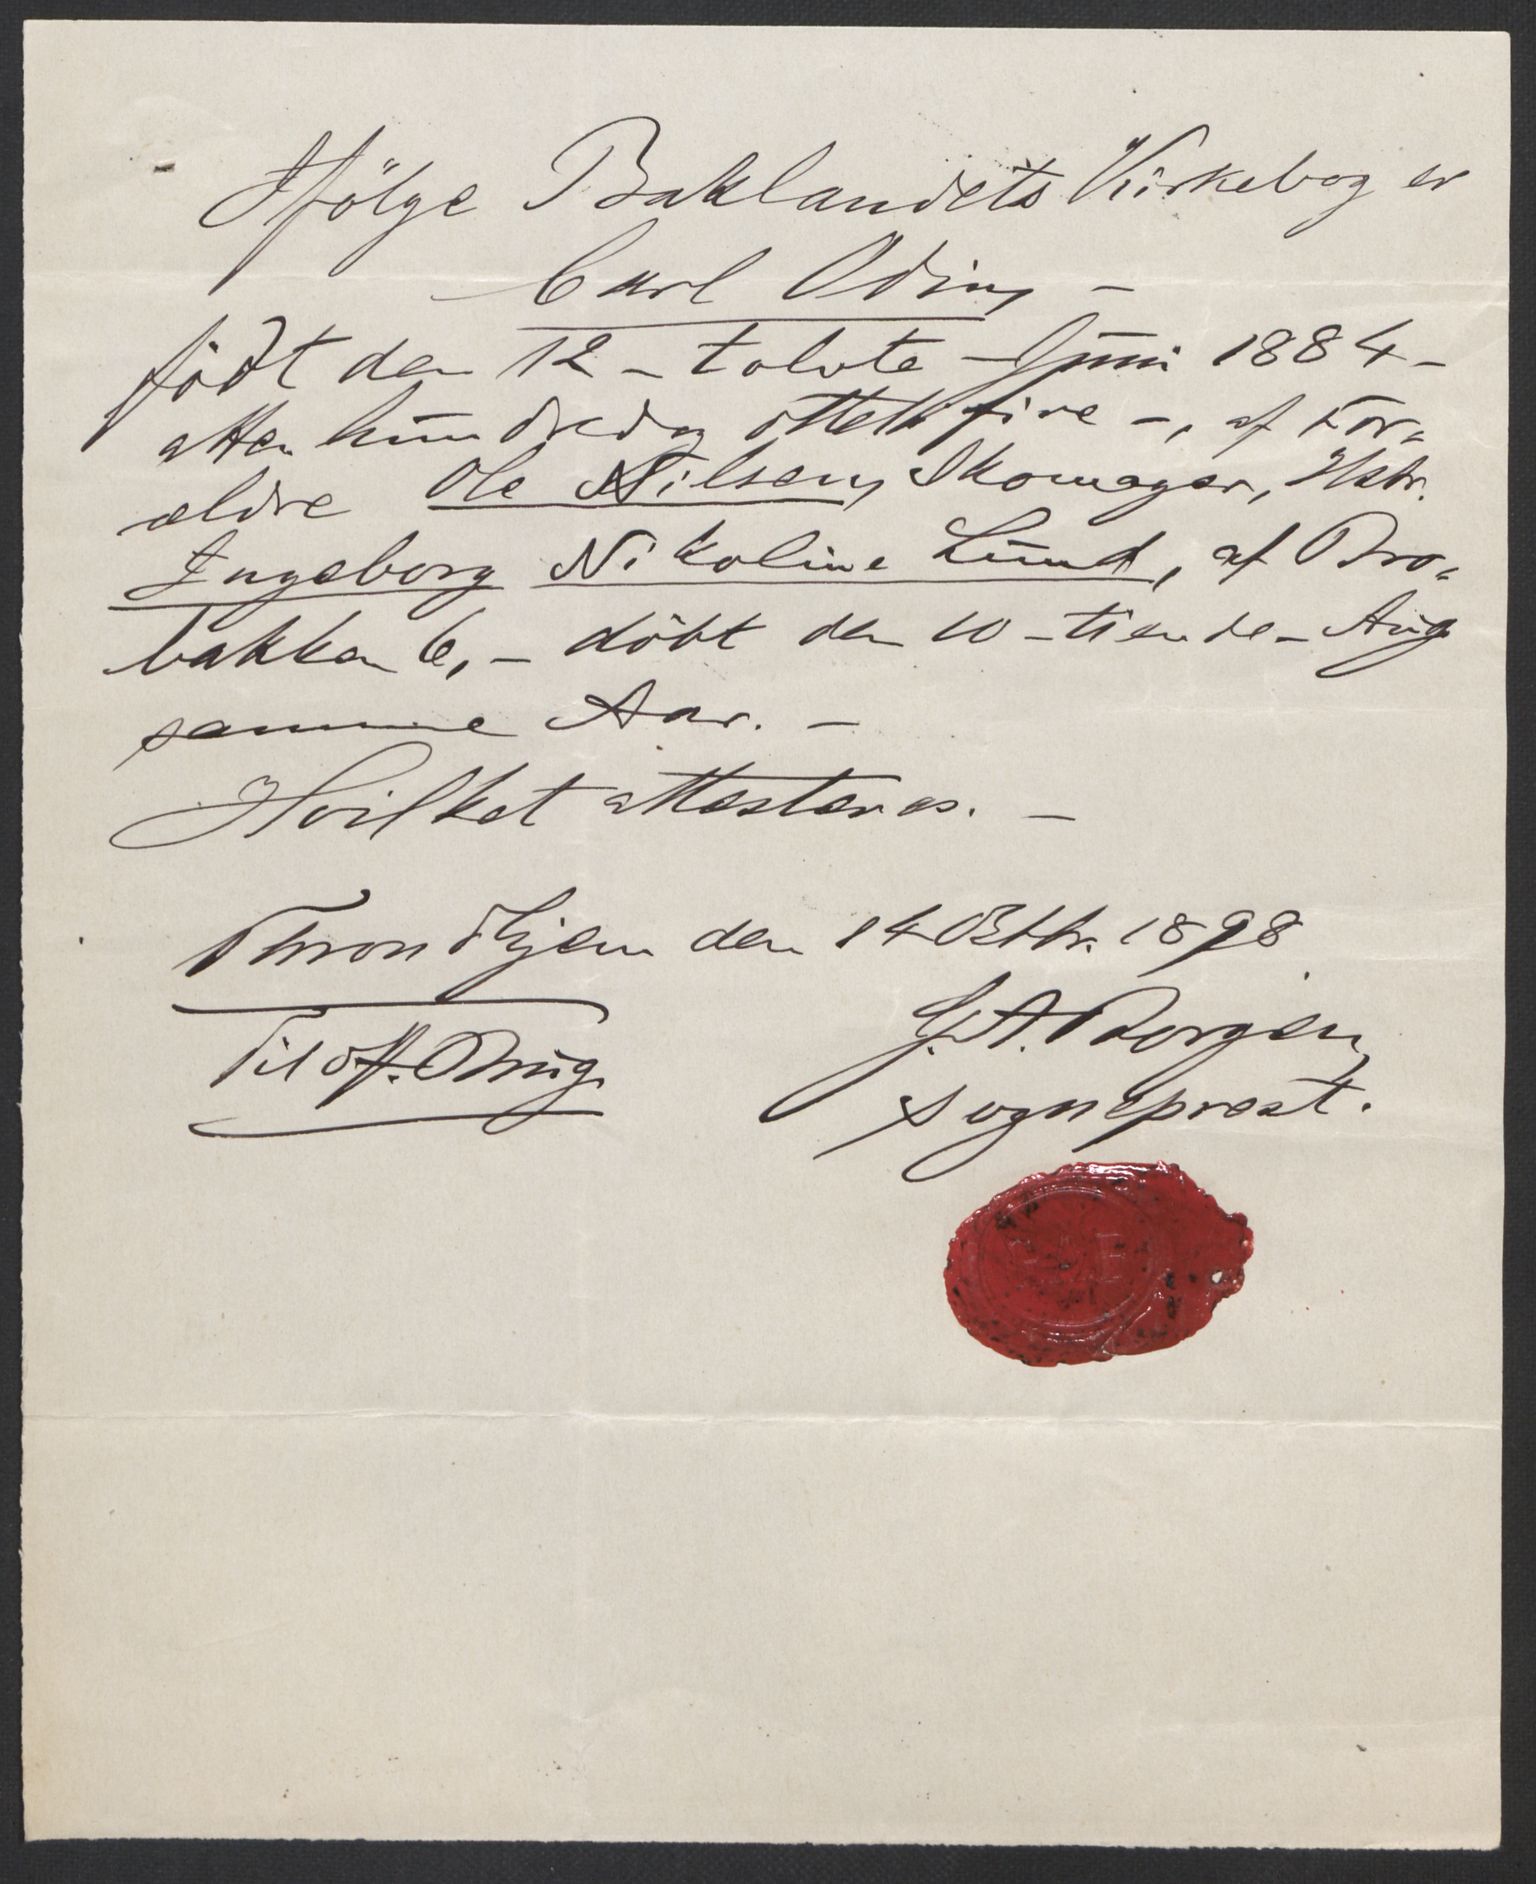 Ifölge Baklandets Kirkebog er
Carl Oding –
födt den 12 – tolvte – Juni 1884 –
atten hundrede og otteti fire –, af For=
ældre Ole Nilsen, Skomager, Hstr.
Ingeborg Nikoline Lund, af Bro=
bakken 6, – döbt den 10 – tiende – Aug
samme Aar. –
Hvilket attesteres. –
Throndhjem den 14 Oktbr. 1898
Til off. Brug.
J. A. Borgen,
sogneprest.